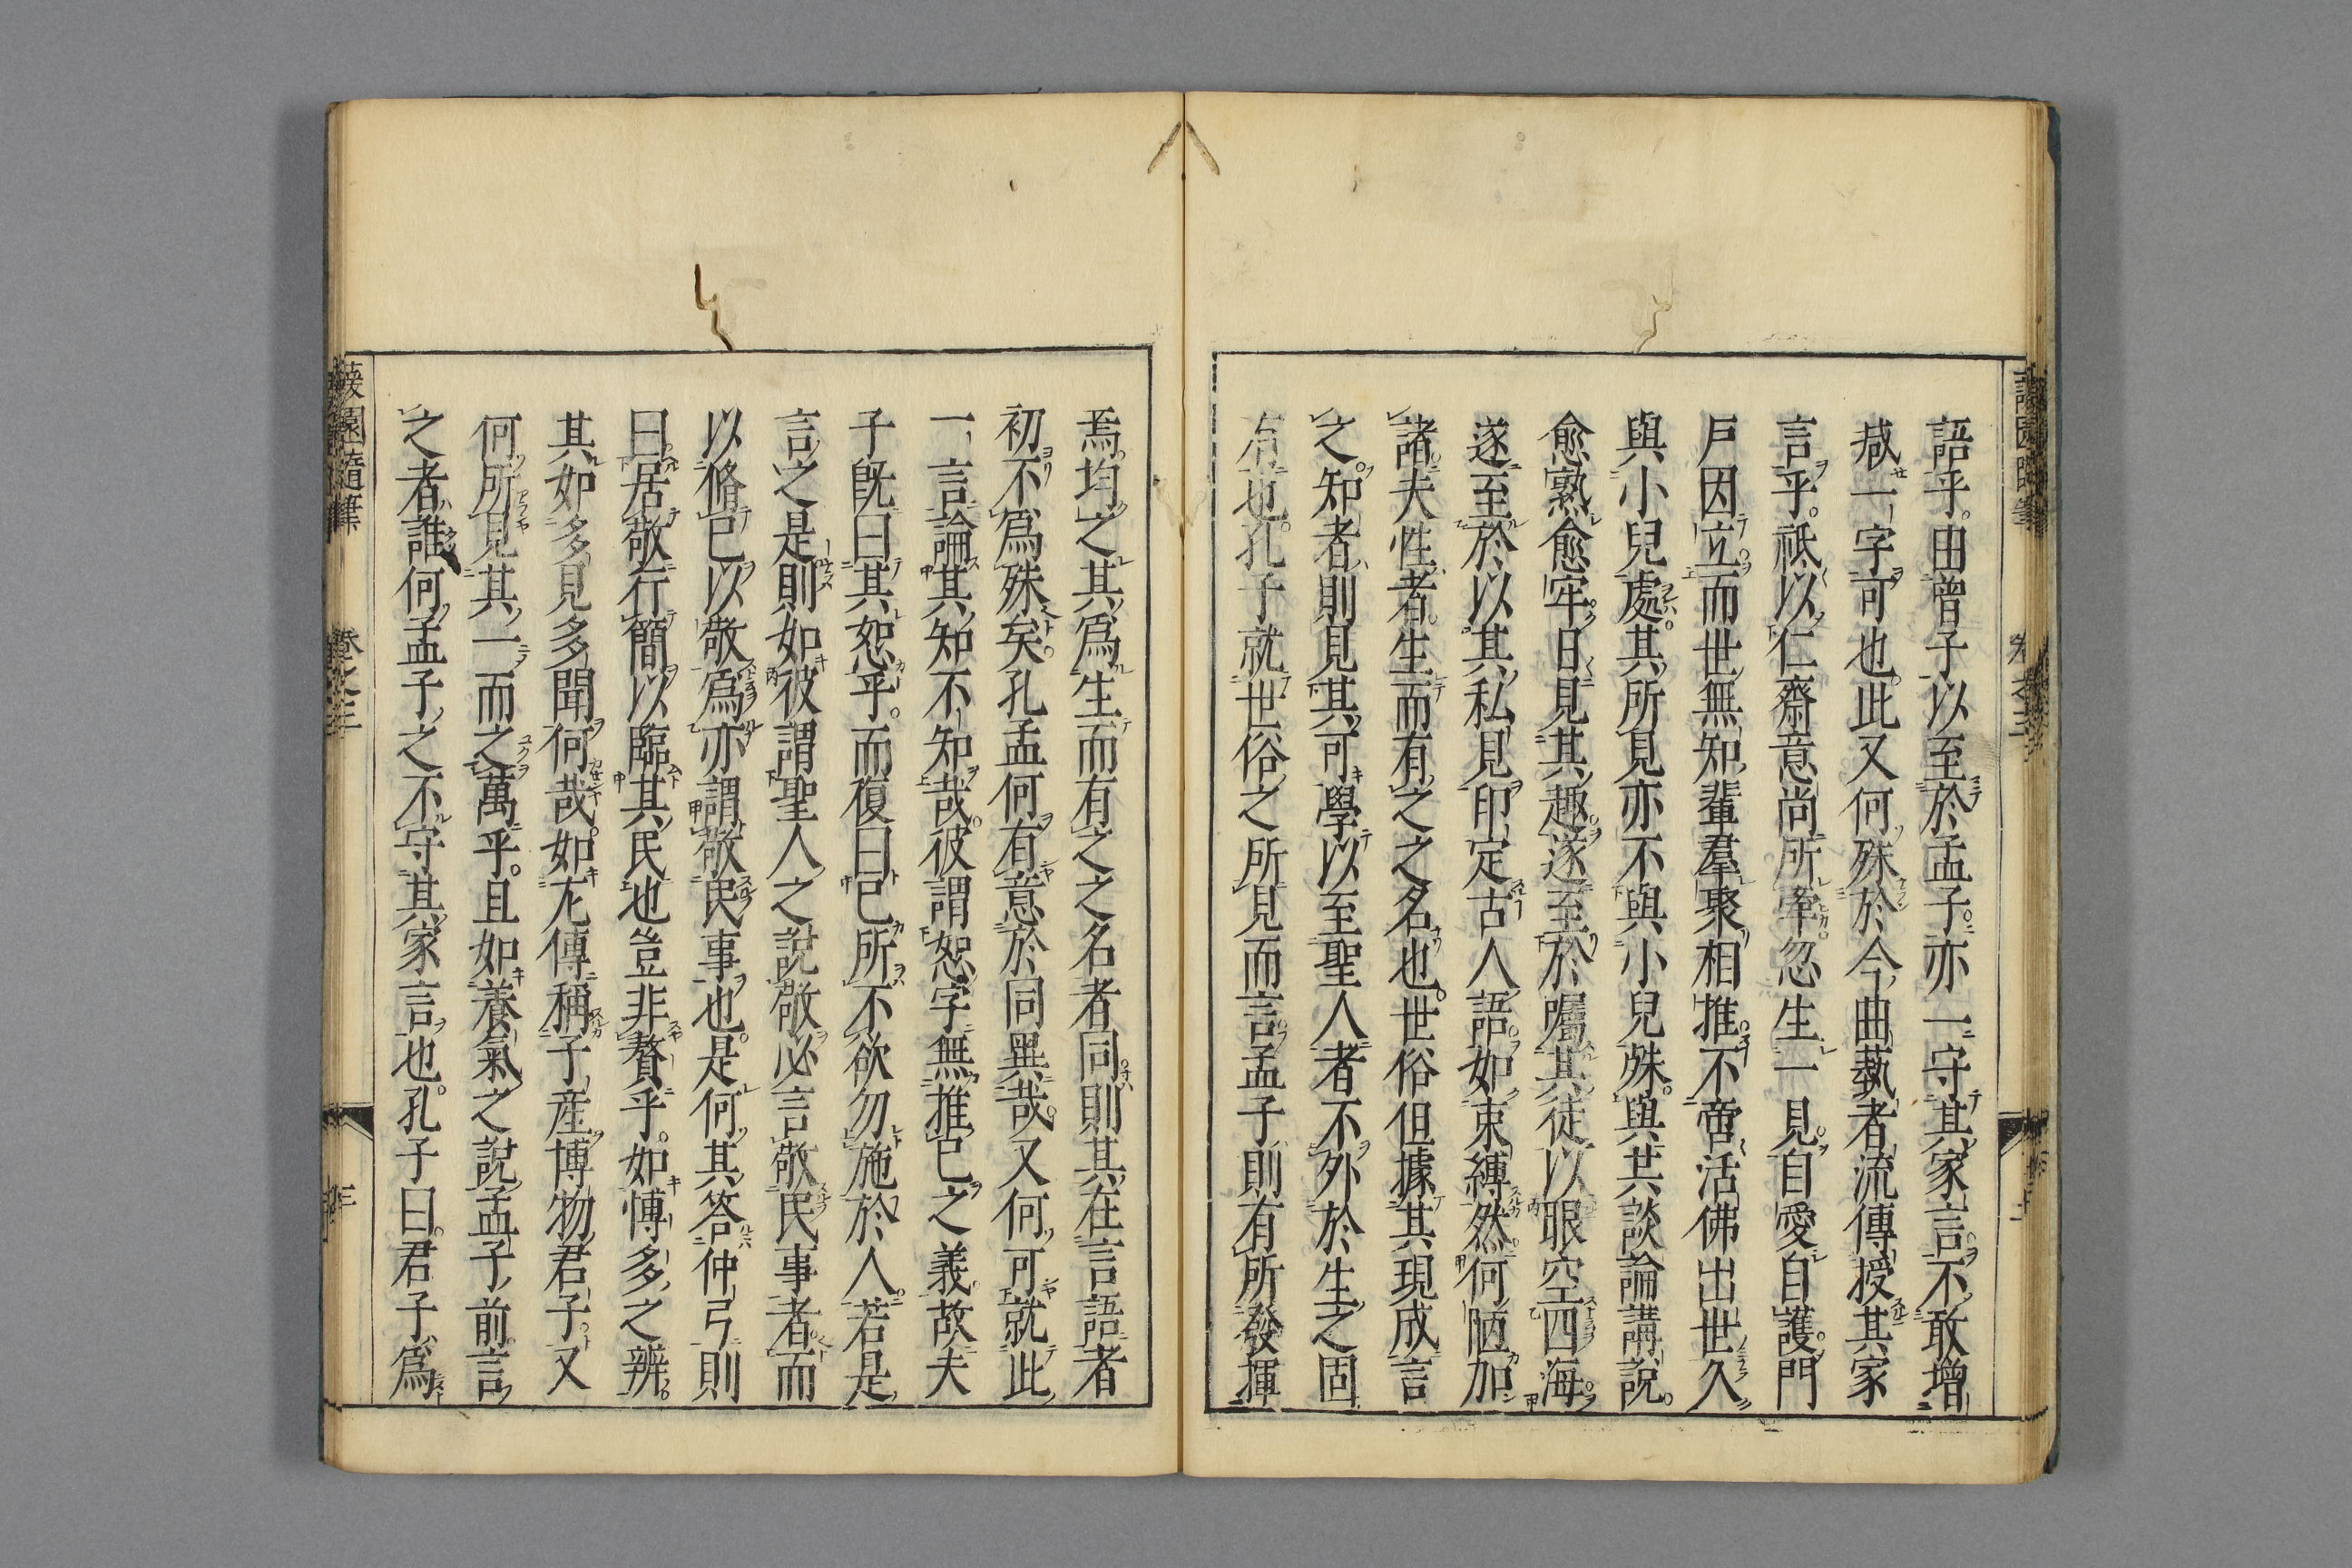 語乎。由曾子以至於孟子。亦一守其家言。不敢增
减一字可也。此又何殊於今曲藝者流傳授其家
言乎。祗以仁齋意尚所牽。忽生一見。自愛自護。門
戸因立。而世無知輩羣聚相推。不啻活佛出世。久
與小兒處。其所見亦不與小兒殊。與共談論講説。
愈熟愈牢。日見其趣。遂至於囑其徒以眼空四海。
遂至於以其私見印定古人語。如束縛然。何陋加
諸。夫性者。生而有之之名也。世俗但據其現成言
之。知者則見其可學以至聖人者不外於生之固
有也。孔子就世俗之所見而言。孟子則有所發揮
焉。均之其爲生而有之之名者同。則其在言語者
初不爲殊矣。孔孟何有意於同異哉。又何可就此
一言論其知不知哉。彼謂恕字無推已之義。故夫
子既曰其恕乎。而復曰已所不欲勿施於人。若是
言之。是則如彼謂聖人之説敬必言敬民事者。而
以脩已以敬爲亦謂敬民事也。是何其答仲弓則
曰。居敬行簡以臨其民也。豈非贅乎。如博多之辨。
其如多見多聞何哉。如左傳稱子産博物君子。又
何所見其一而之萬乎。且如養氣之説。孟子前言
之者誰何。孟子之不守其家言也。孔子曰。君子爲
蘐園隨筆
卷之三